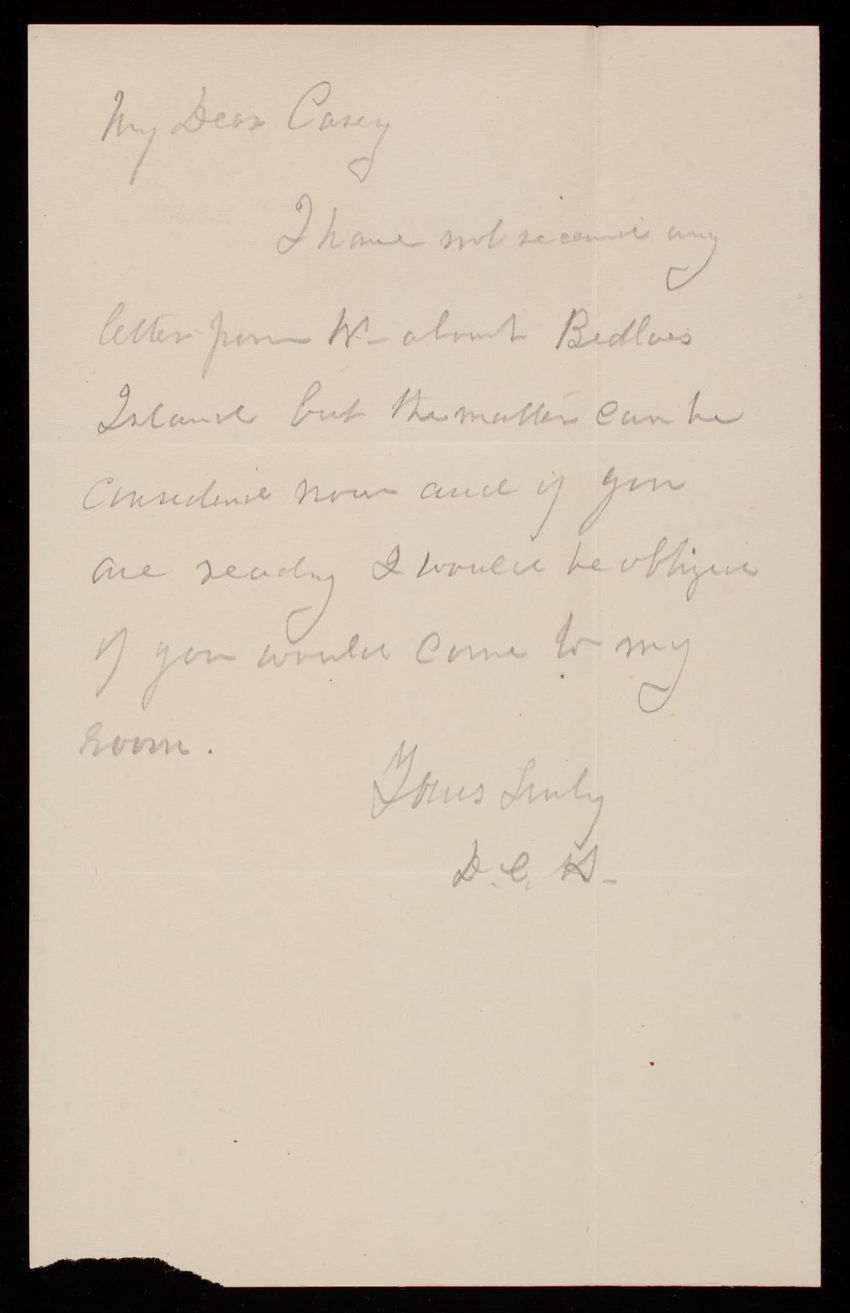 My Dear Casey
I have not received any
letter from W- about Bedloes
Island but the matter can be
considered now and if you
are ready I would be obliged
if you would come to my
room.
Yours Truly
D. C. H-